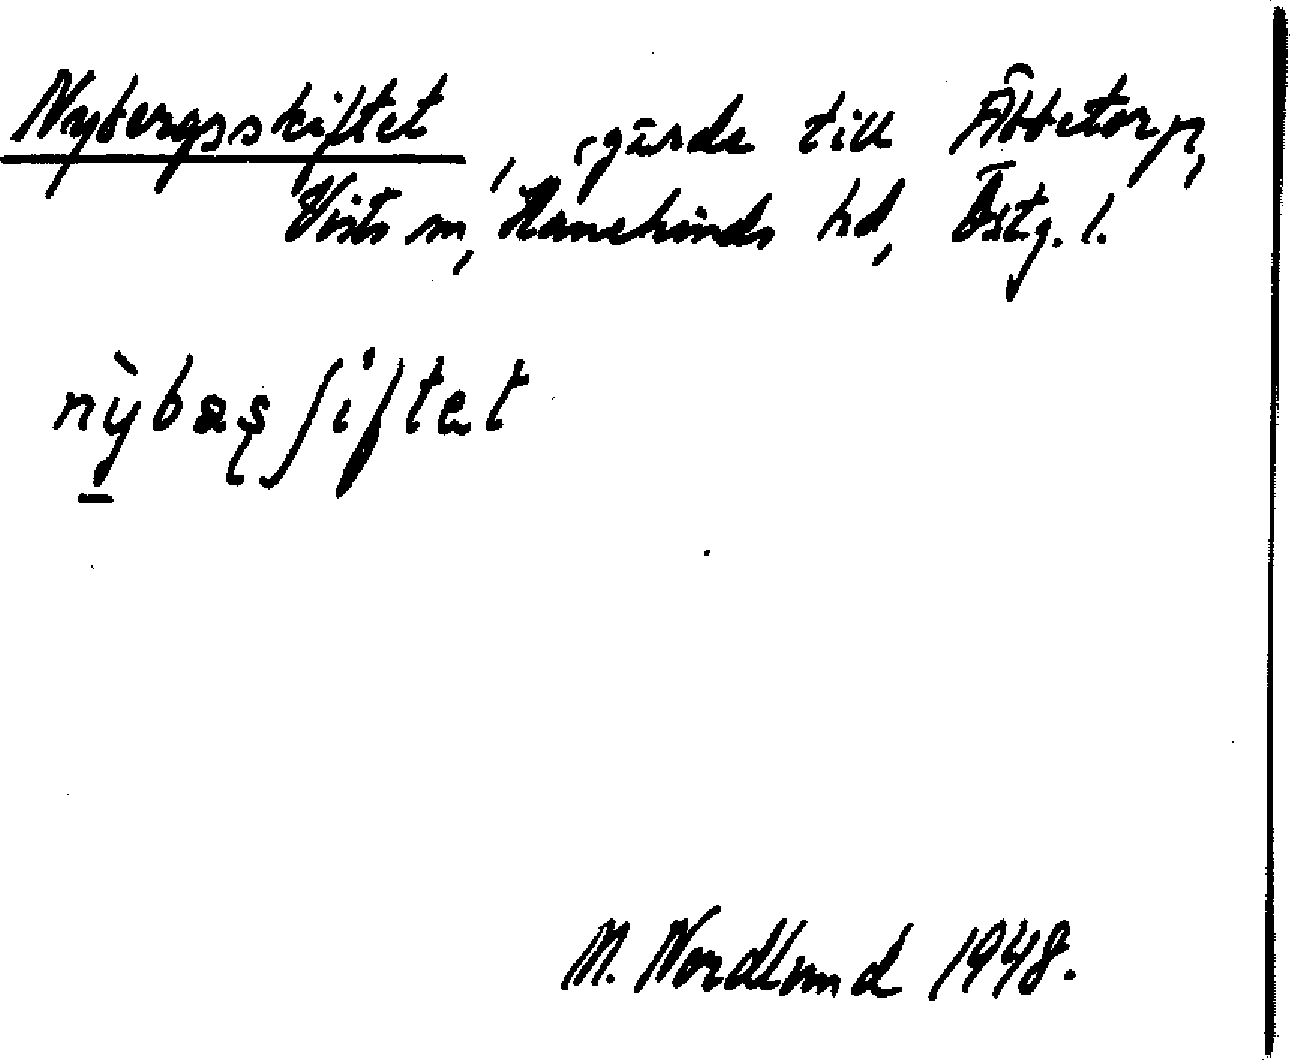 Nybergsskiftet, gärde till Äbbetorp,
Vists sn, Hanekinds hd, Östg. l.
nỳbæʂʃiftət
M. Nordlund 1948.